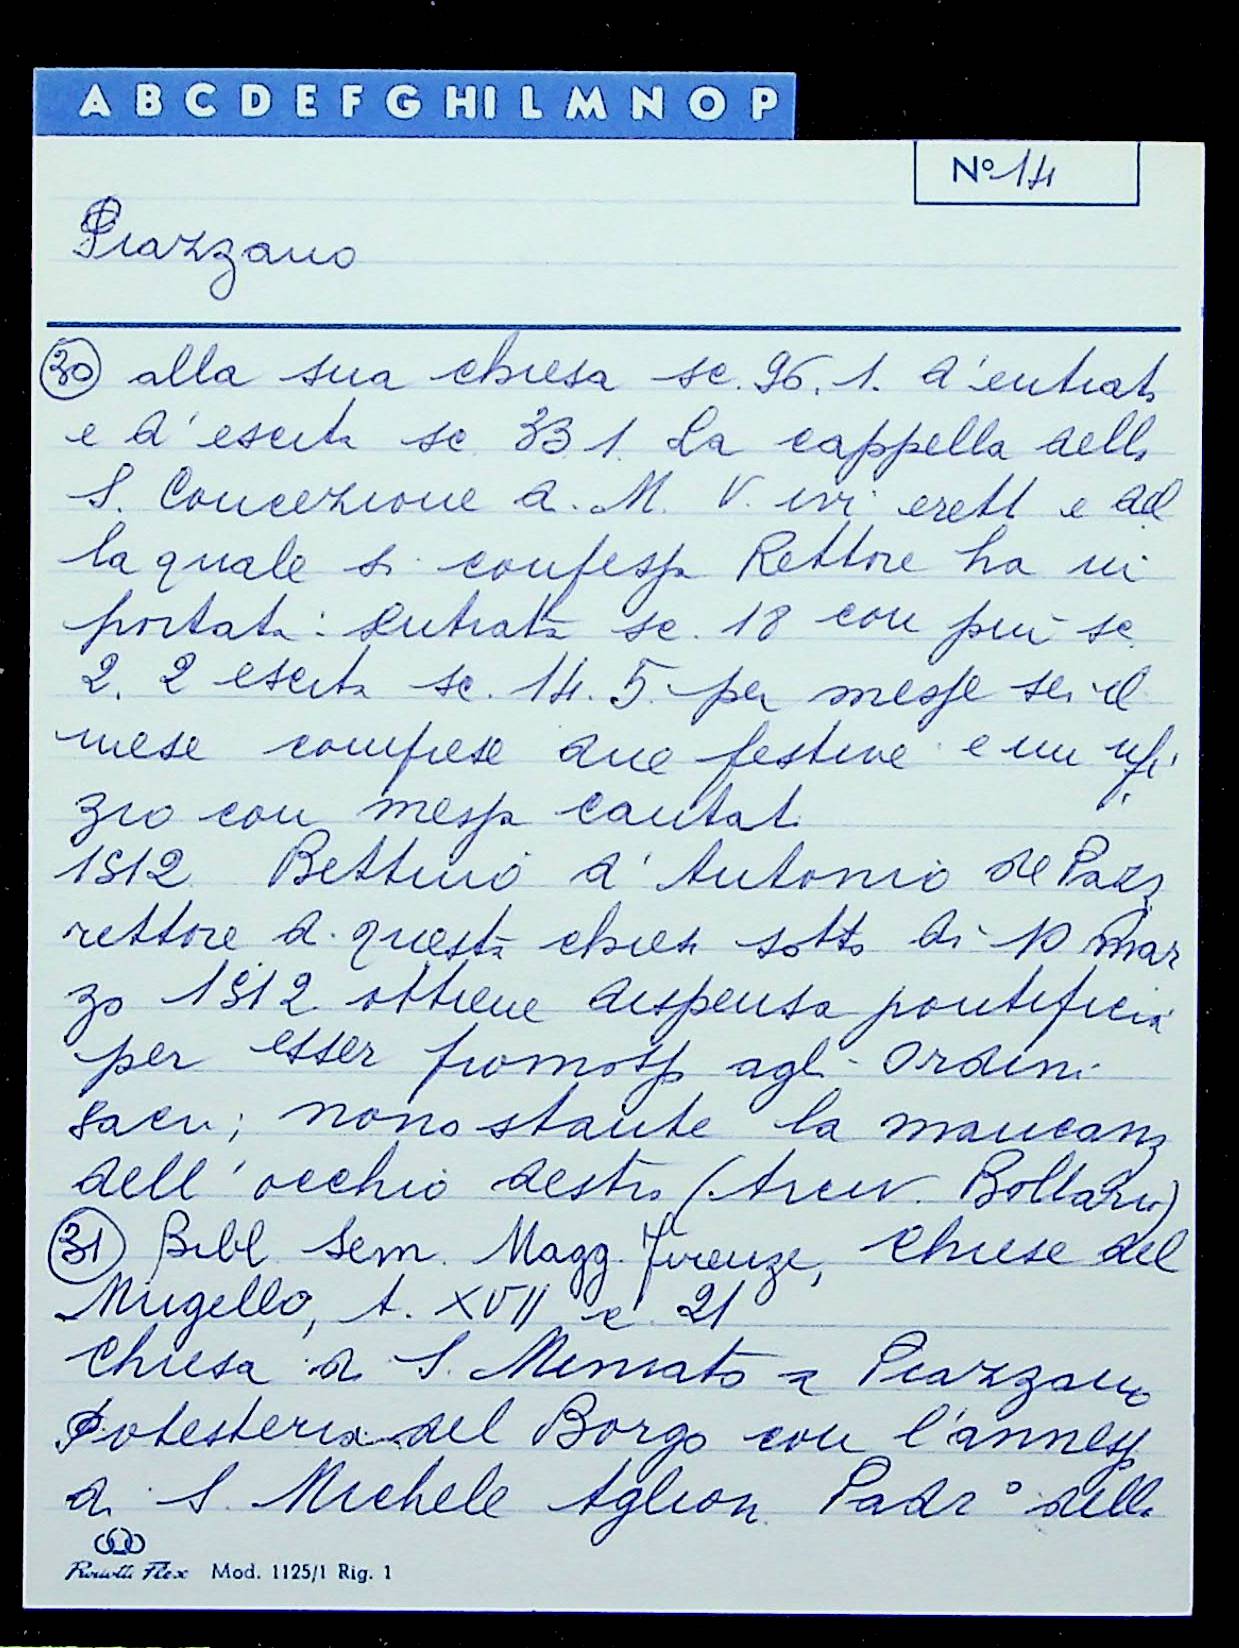 A B C D E F G HI L M N O P
N° 14
Piazzano
30 alla sua chiesa sc. 96. 1. d'entrata
e d'escita sc 33 1. La cappella della
S. Concezione di M. V. ivi erett e al
la quale si confessa Rettore ha in
portata: Entrata sc. 18 con più sc.
2. 2 escita sc. 14. 5. per messe sei il
mese comprese due festive e un ufi
zio con messa cantata
1512 Bettino d'Antonio de Pazzi
rettore di questa chiesa sotto dì 10 Mar
zo 1512. ottiene dispensa pontificia
per esser promosso agli Ordini
sacri; nonostante la mancanza
dell'occhio destro (Arciv. Bollario)
31 Bibl Sem. Magg. Firenze, Chiese del
Mugello, t. XVII c. 21
Chiesa di S. Miniato a Piazzano
Potesteria del Borgo con l'annessa
di S. Michele Aglioni Padr° della
Mod. 1125/1 Rig. 1